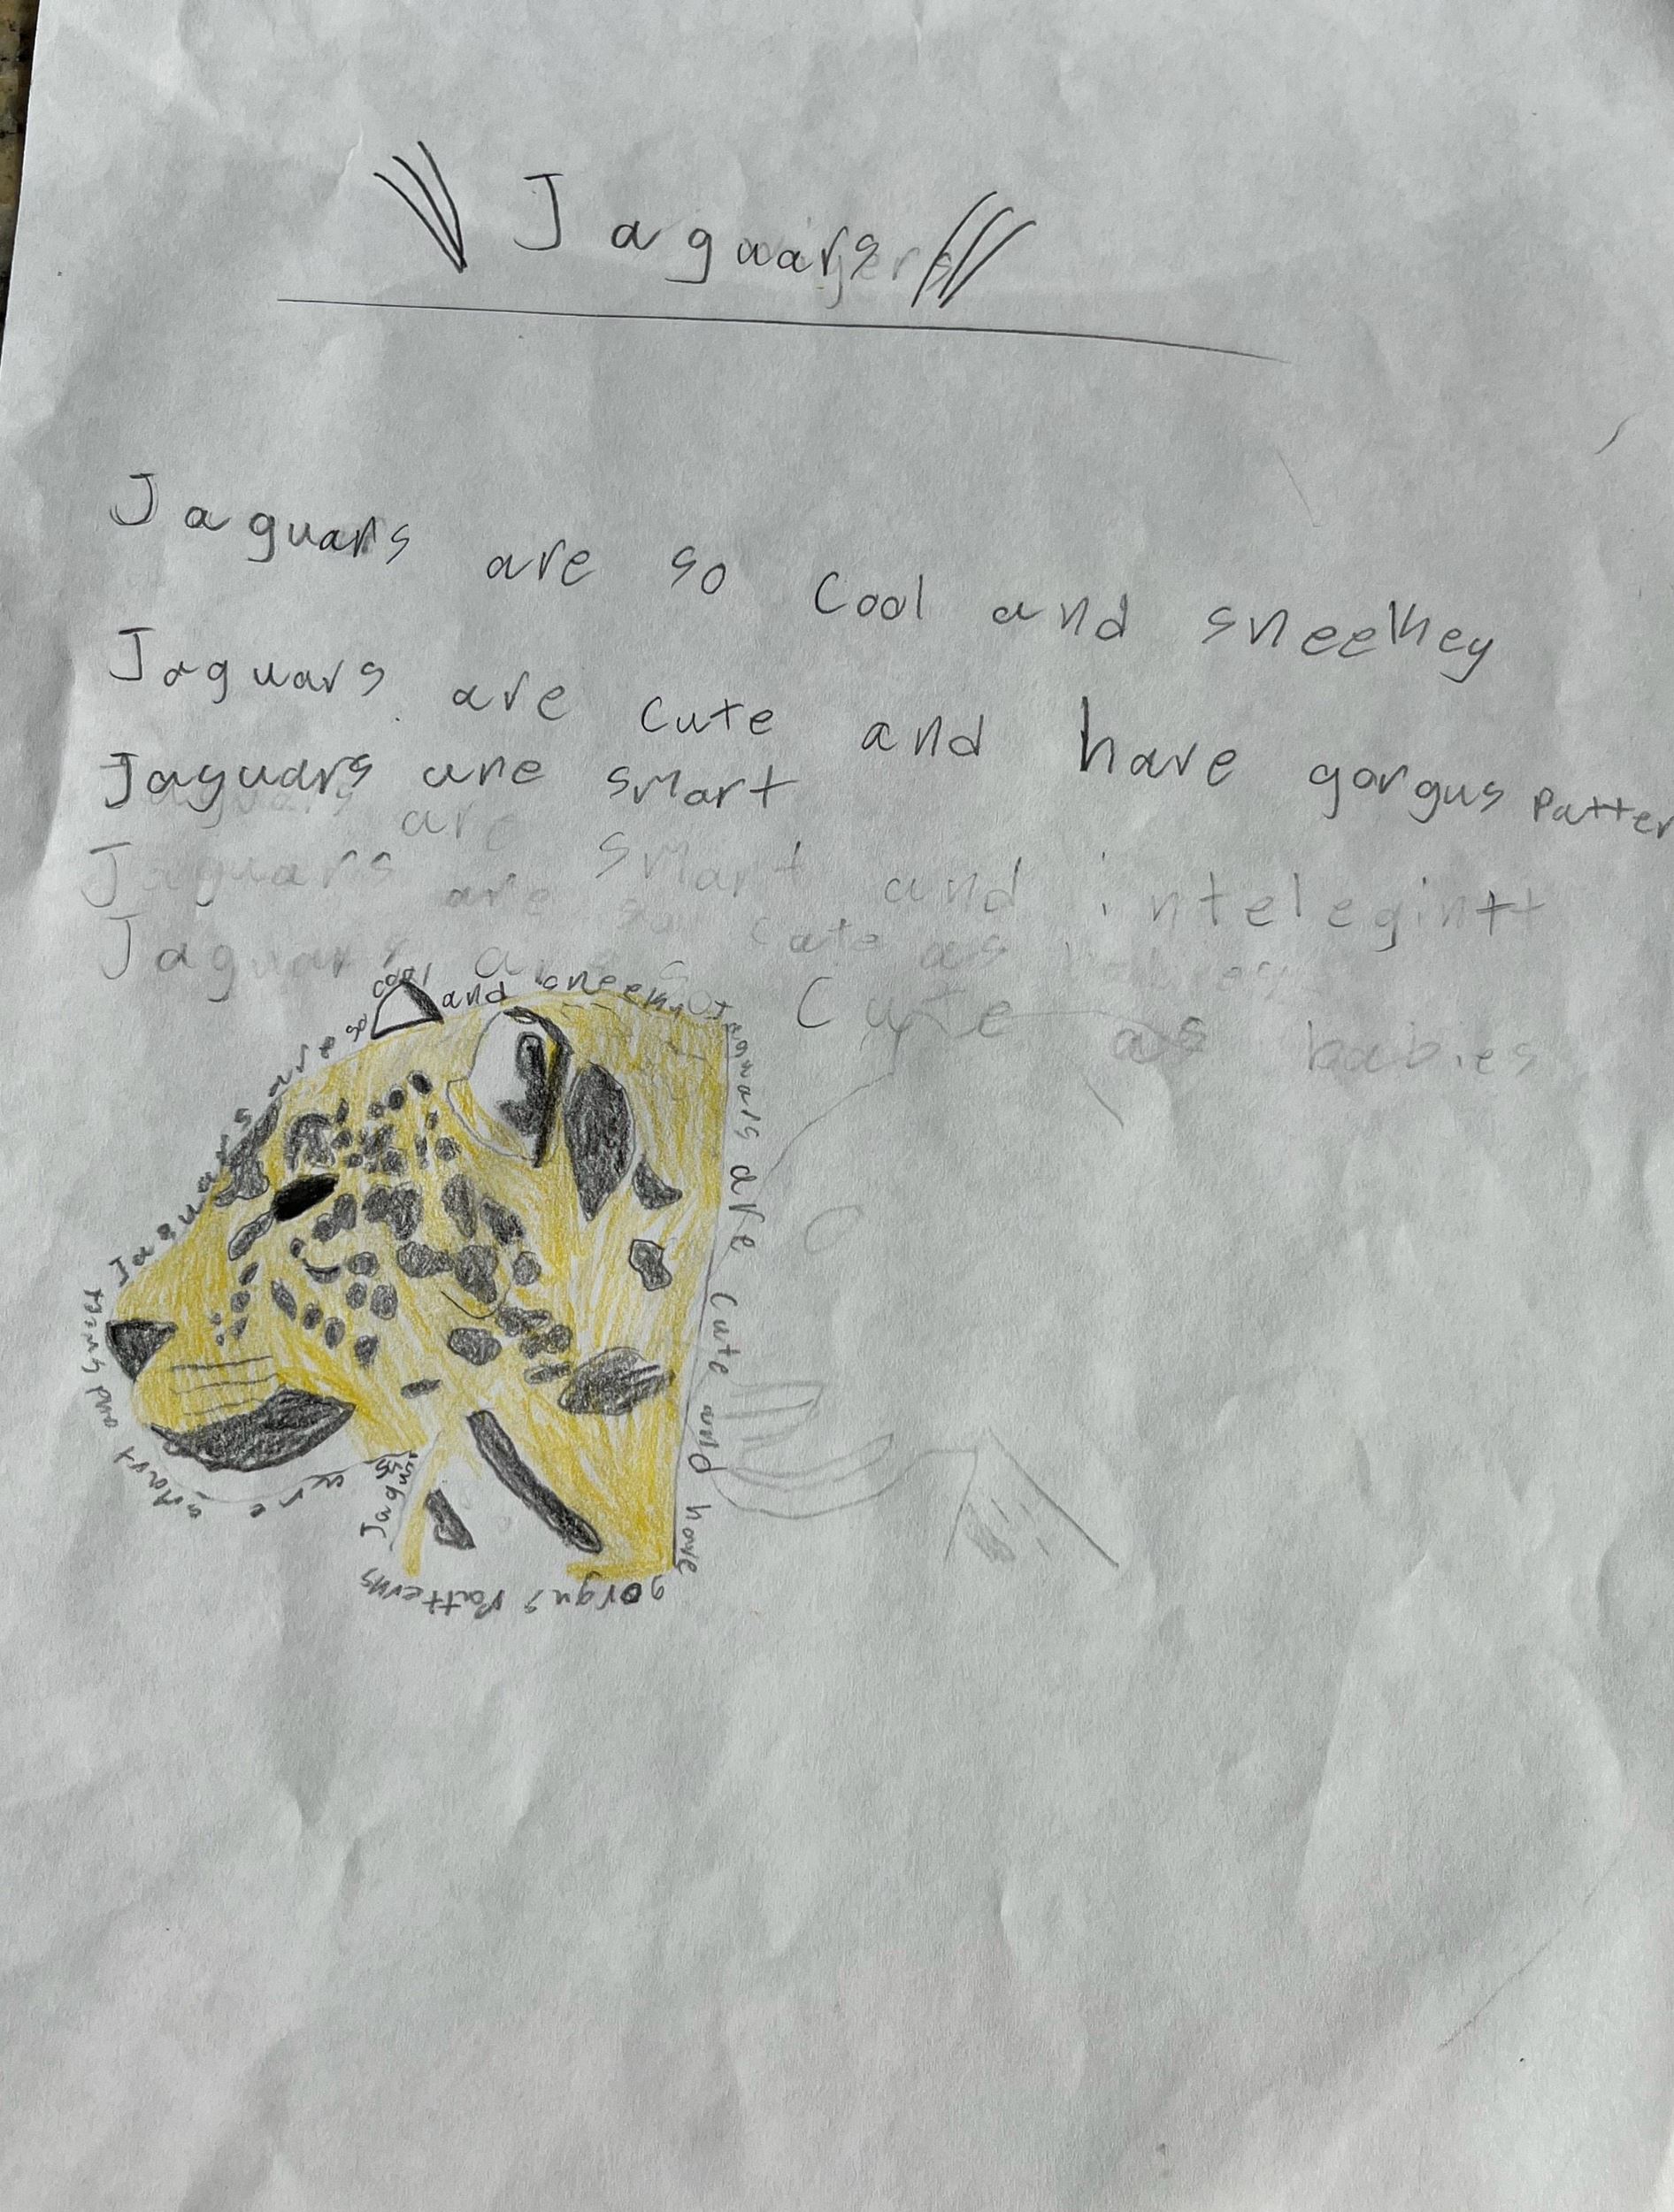 Jaguars
Jaguars are so cool and sneekey
Jaguars are cute and have gorgus patter
Jaguars are smart
Jaguars are smart and intelegintt
Jaguars are so cute as babies
Jaguars are so cool and sneeky
Jaguars are cute and have
gorgus patterns
Jaguars are smart and sweet